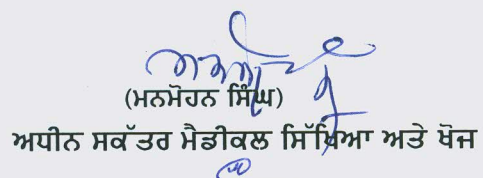 (ਮਨਮੋਹਨ ਸਿੰਘ)
ਅਧੀਨ ਸਕੱਤਰ ਮੈਡੀਕਲ ਸਿੱਖਿਆ ਅਤੇ ਖੋਜ